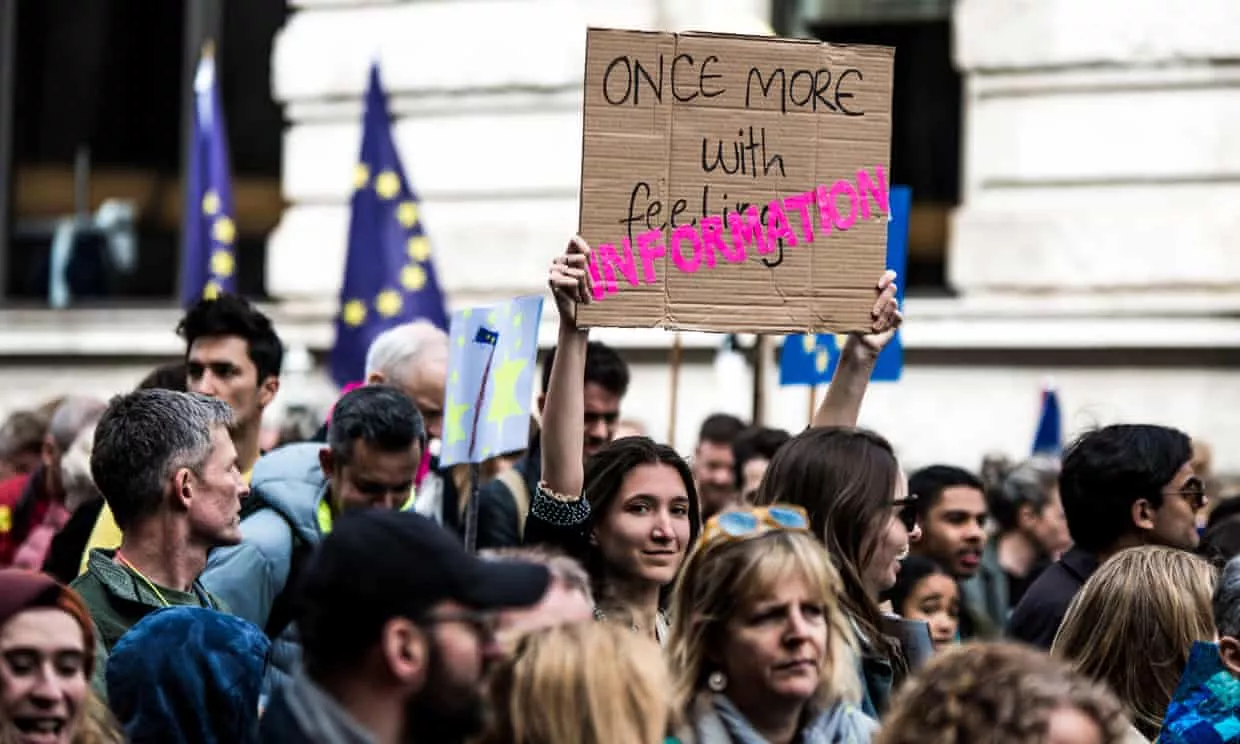 ONCE MORE
with
feeling
INFORMATION